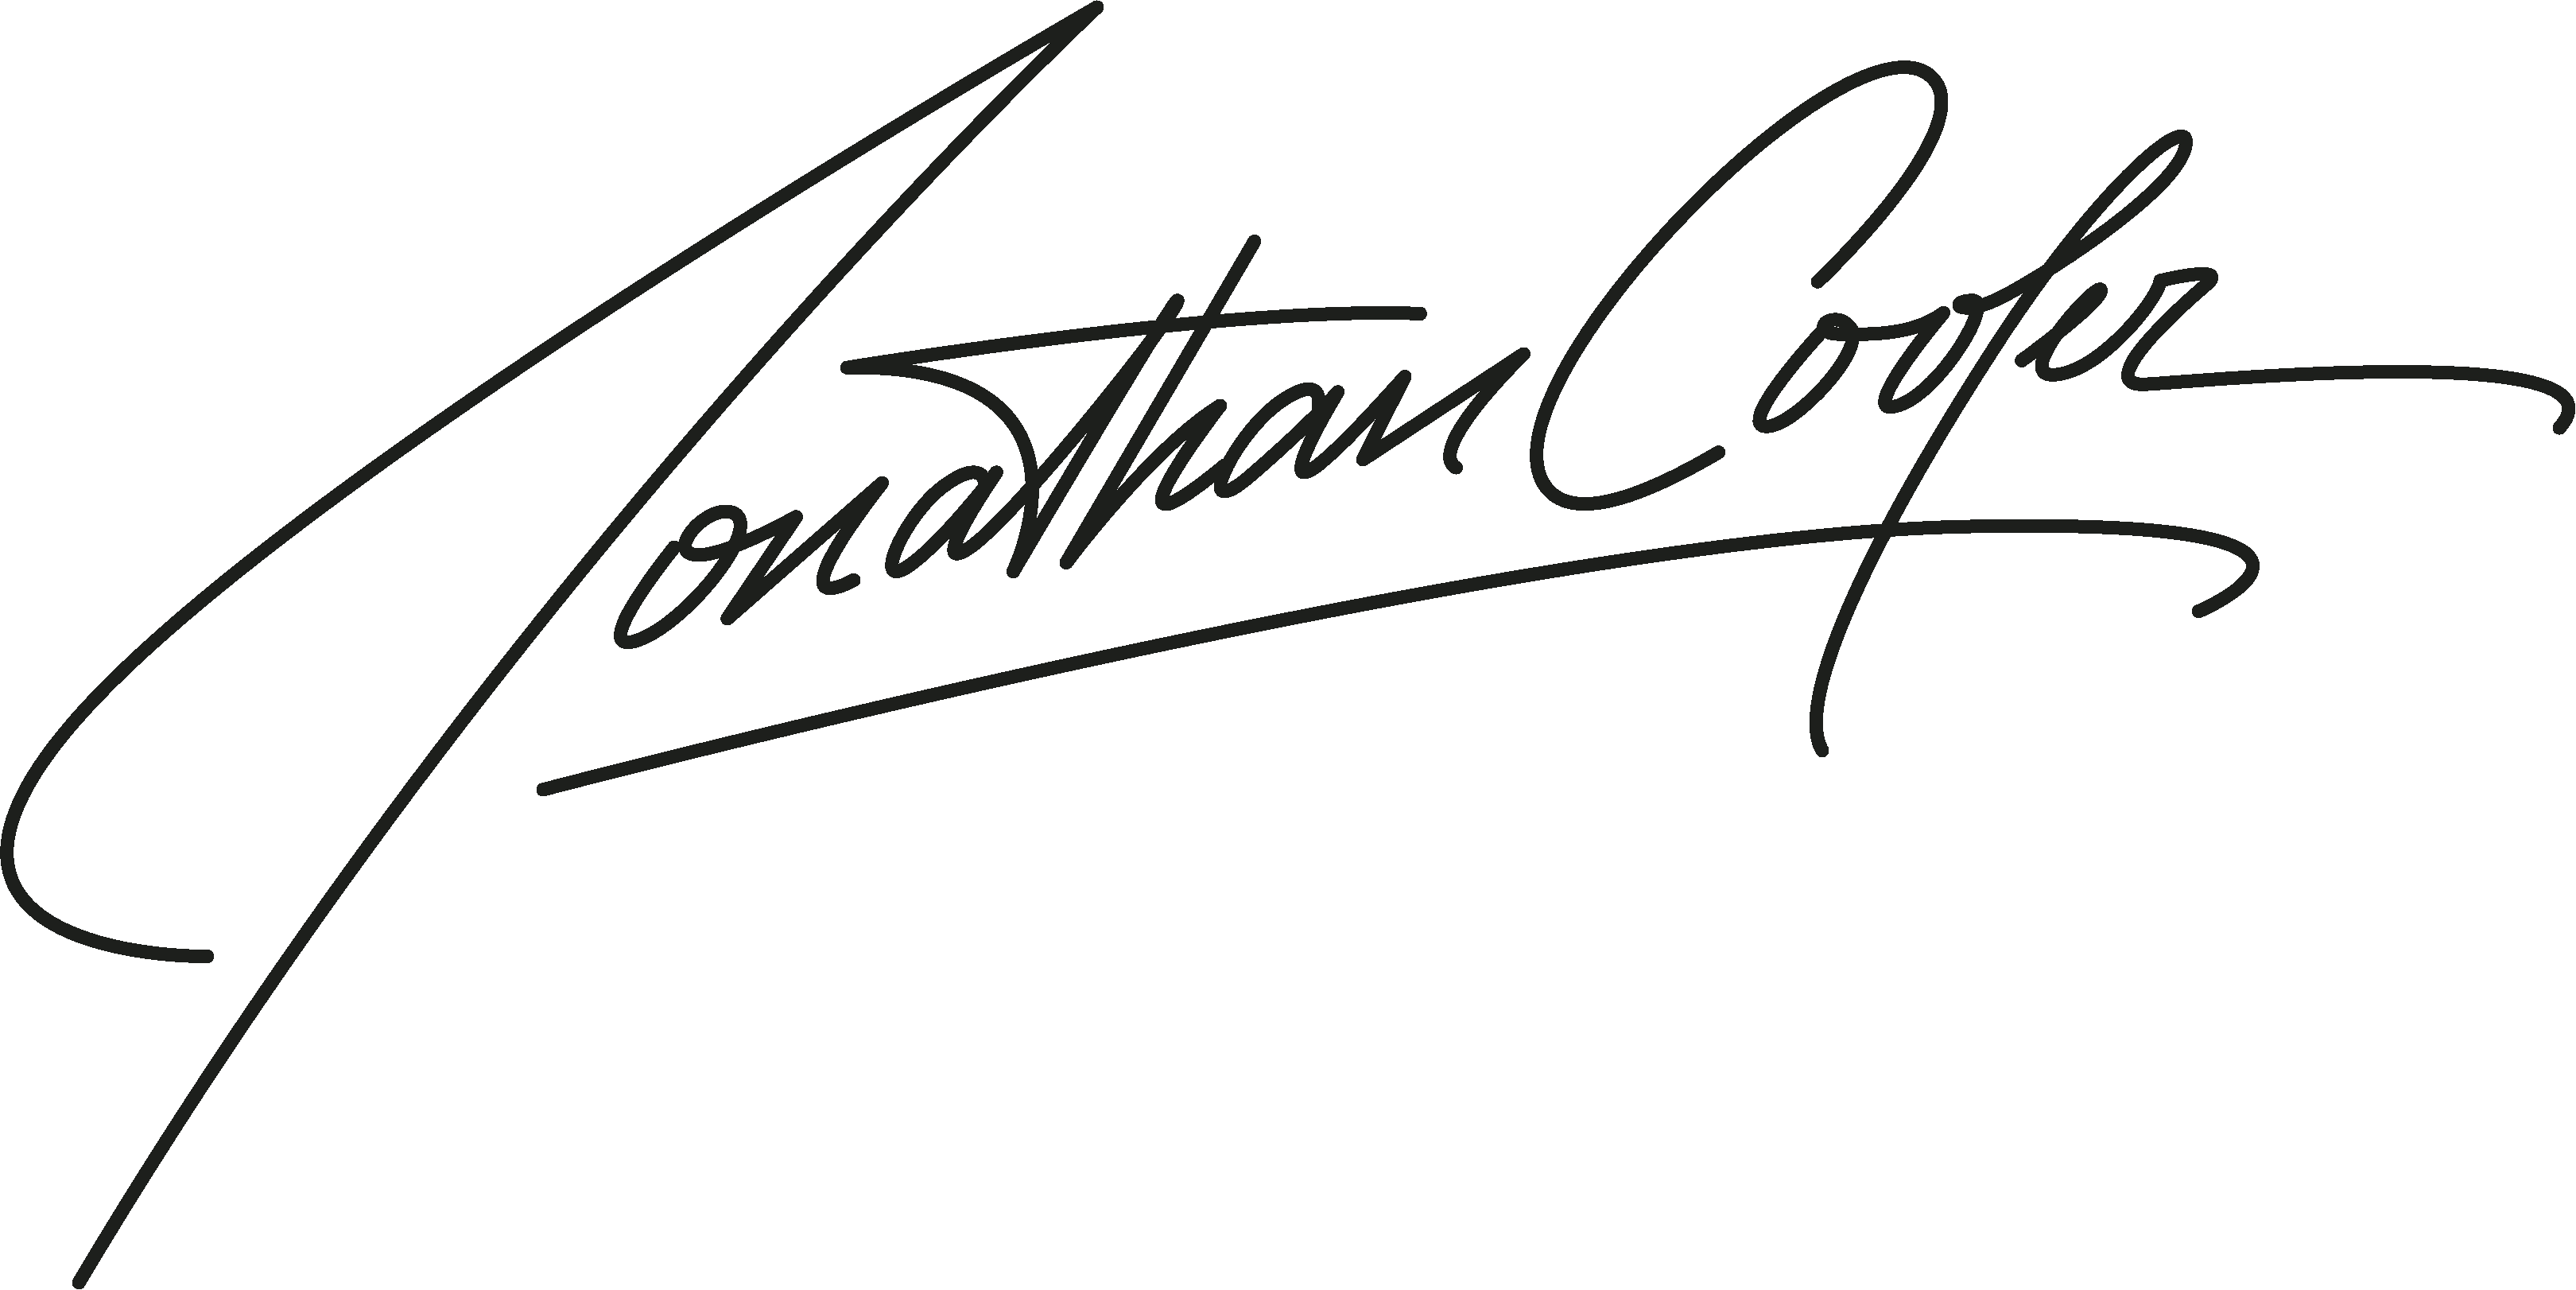 Jonathan Cooper